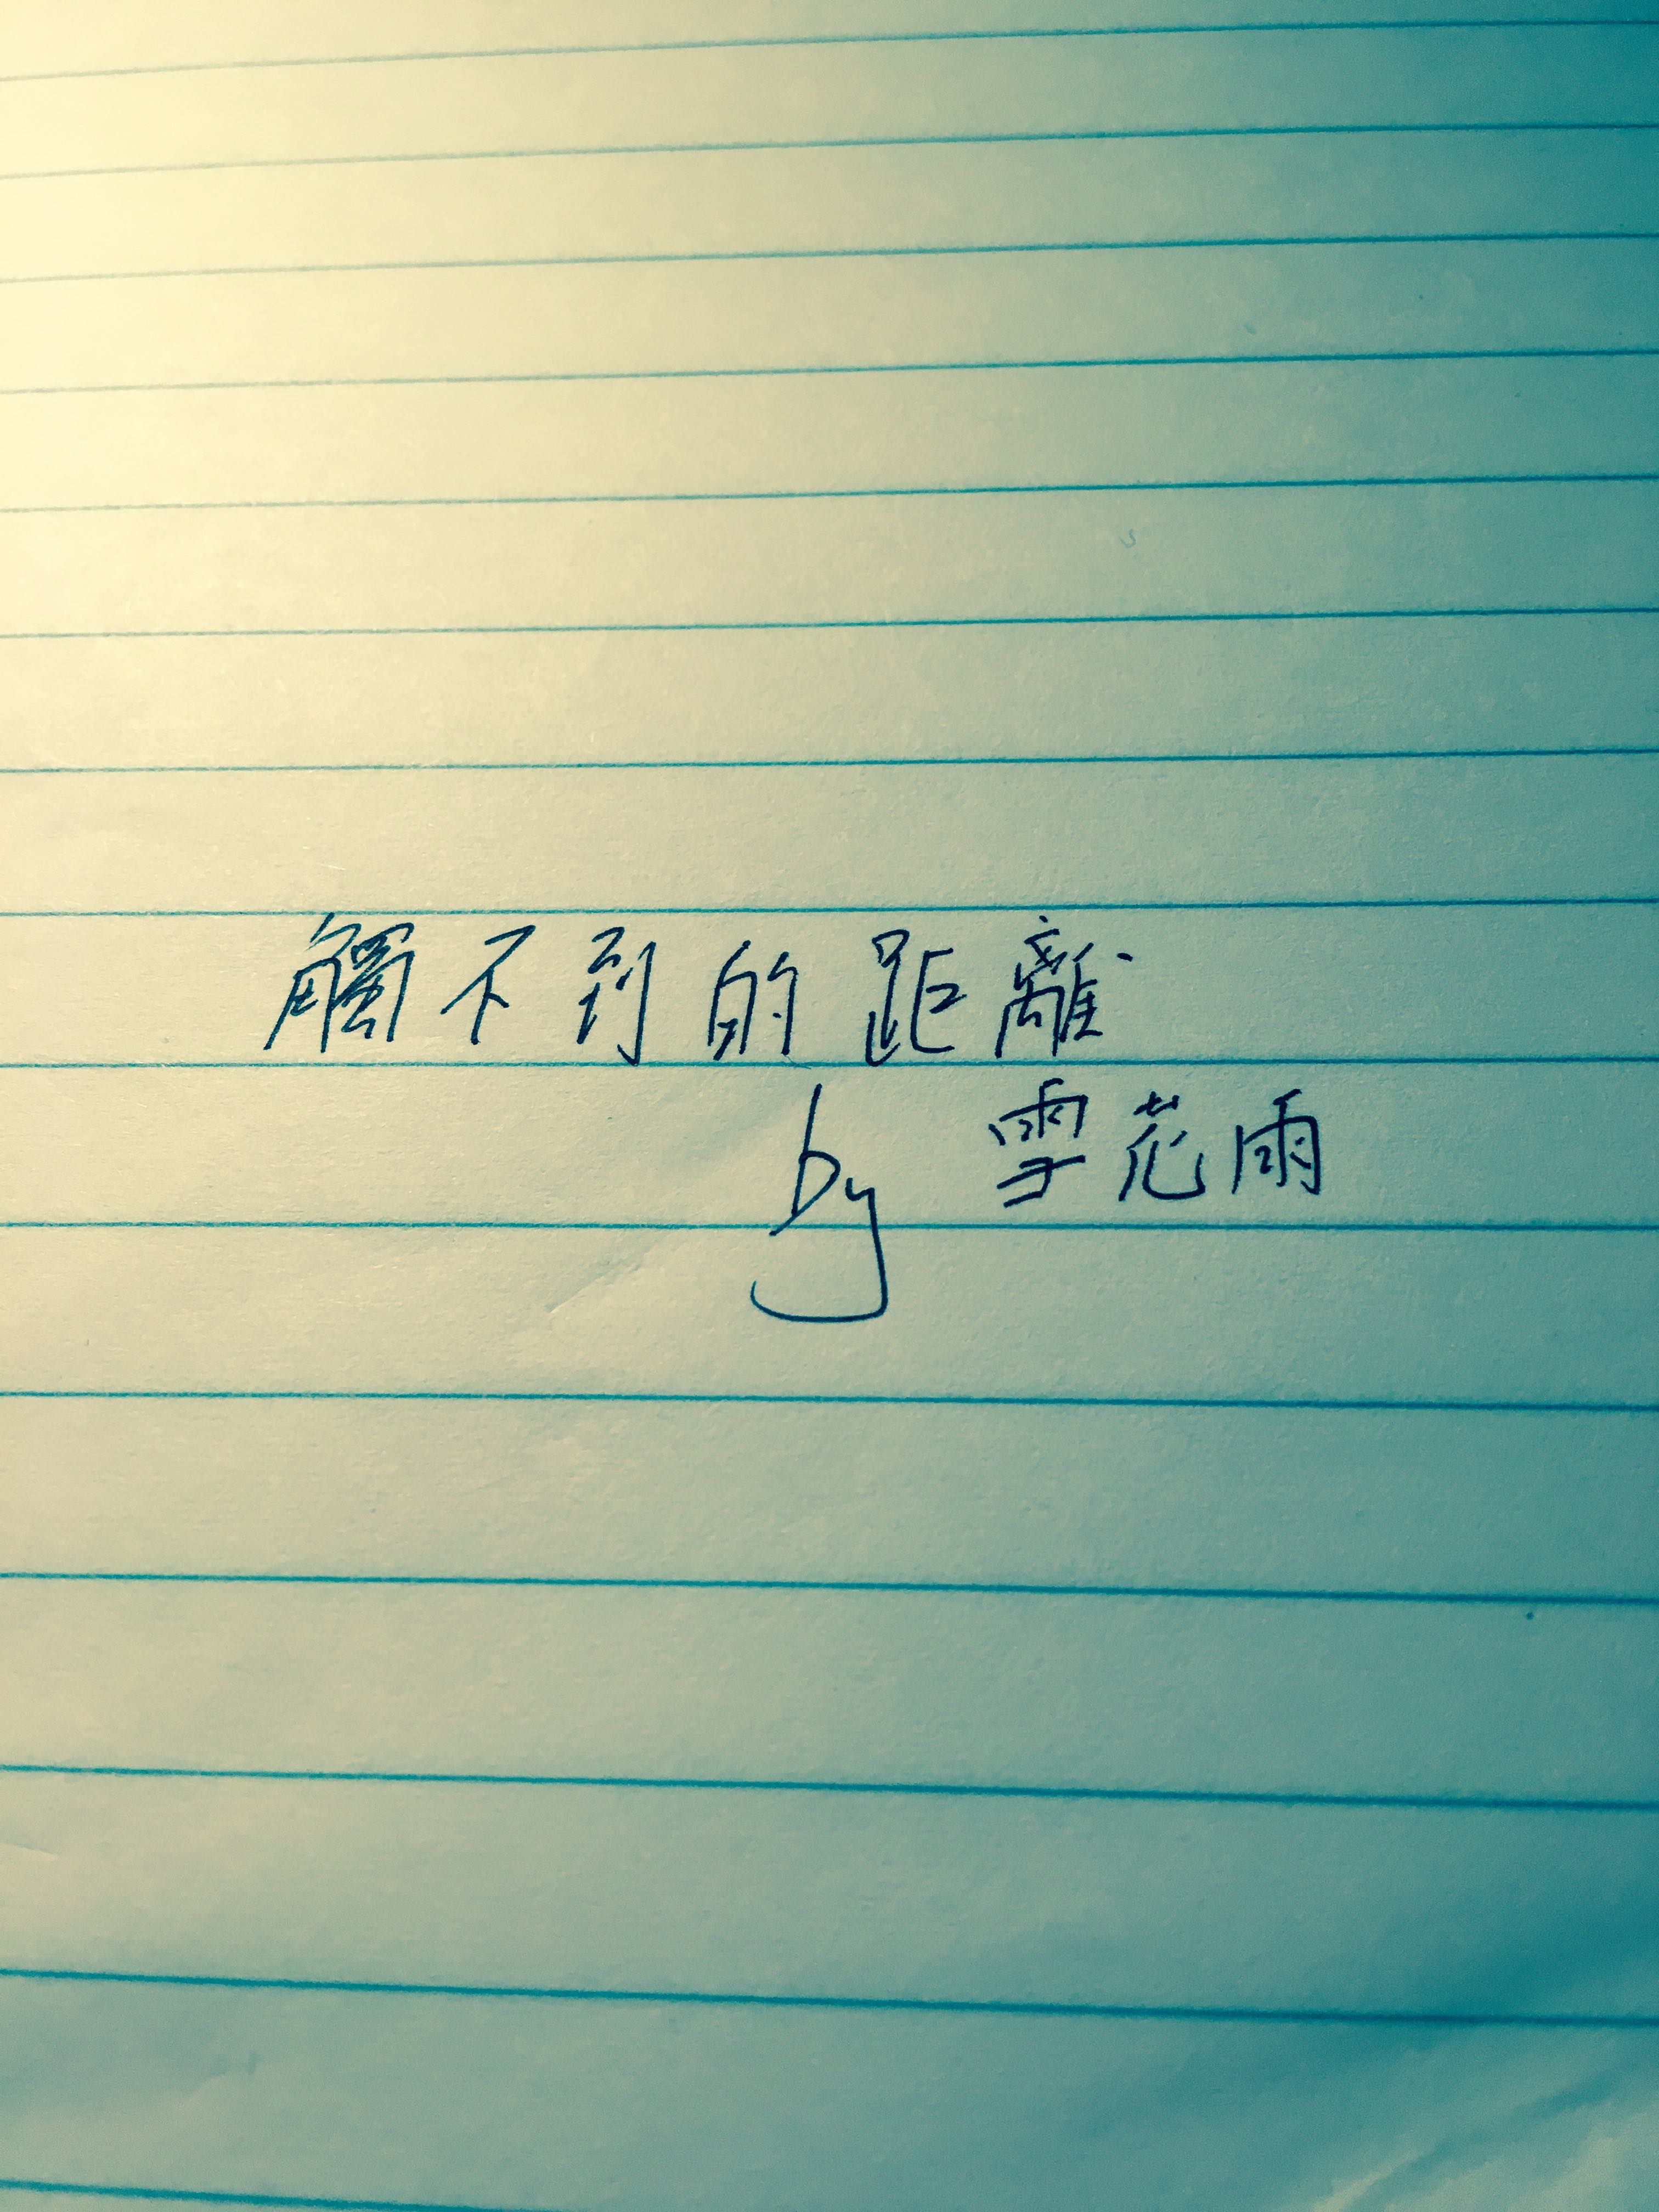 觸不到的距離
by 雪花雨